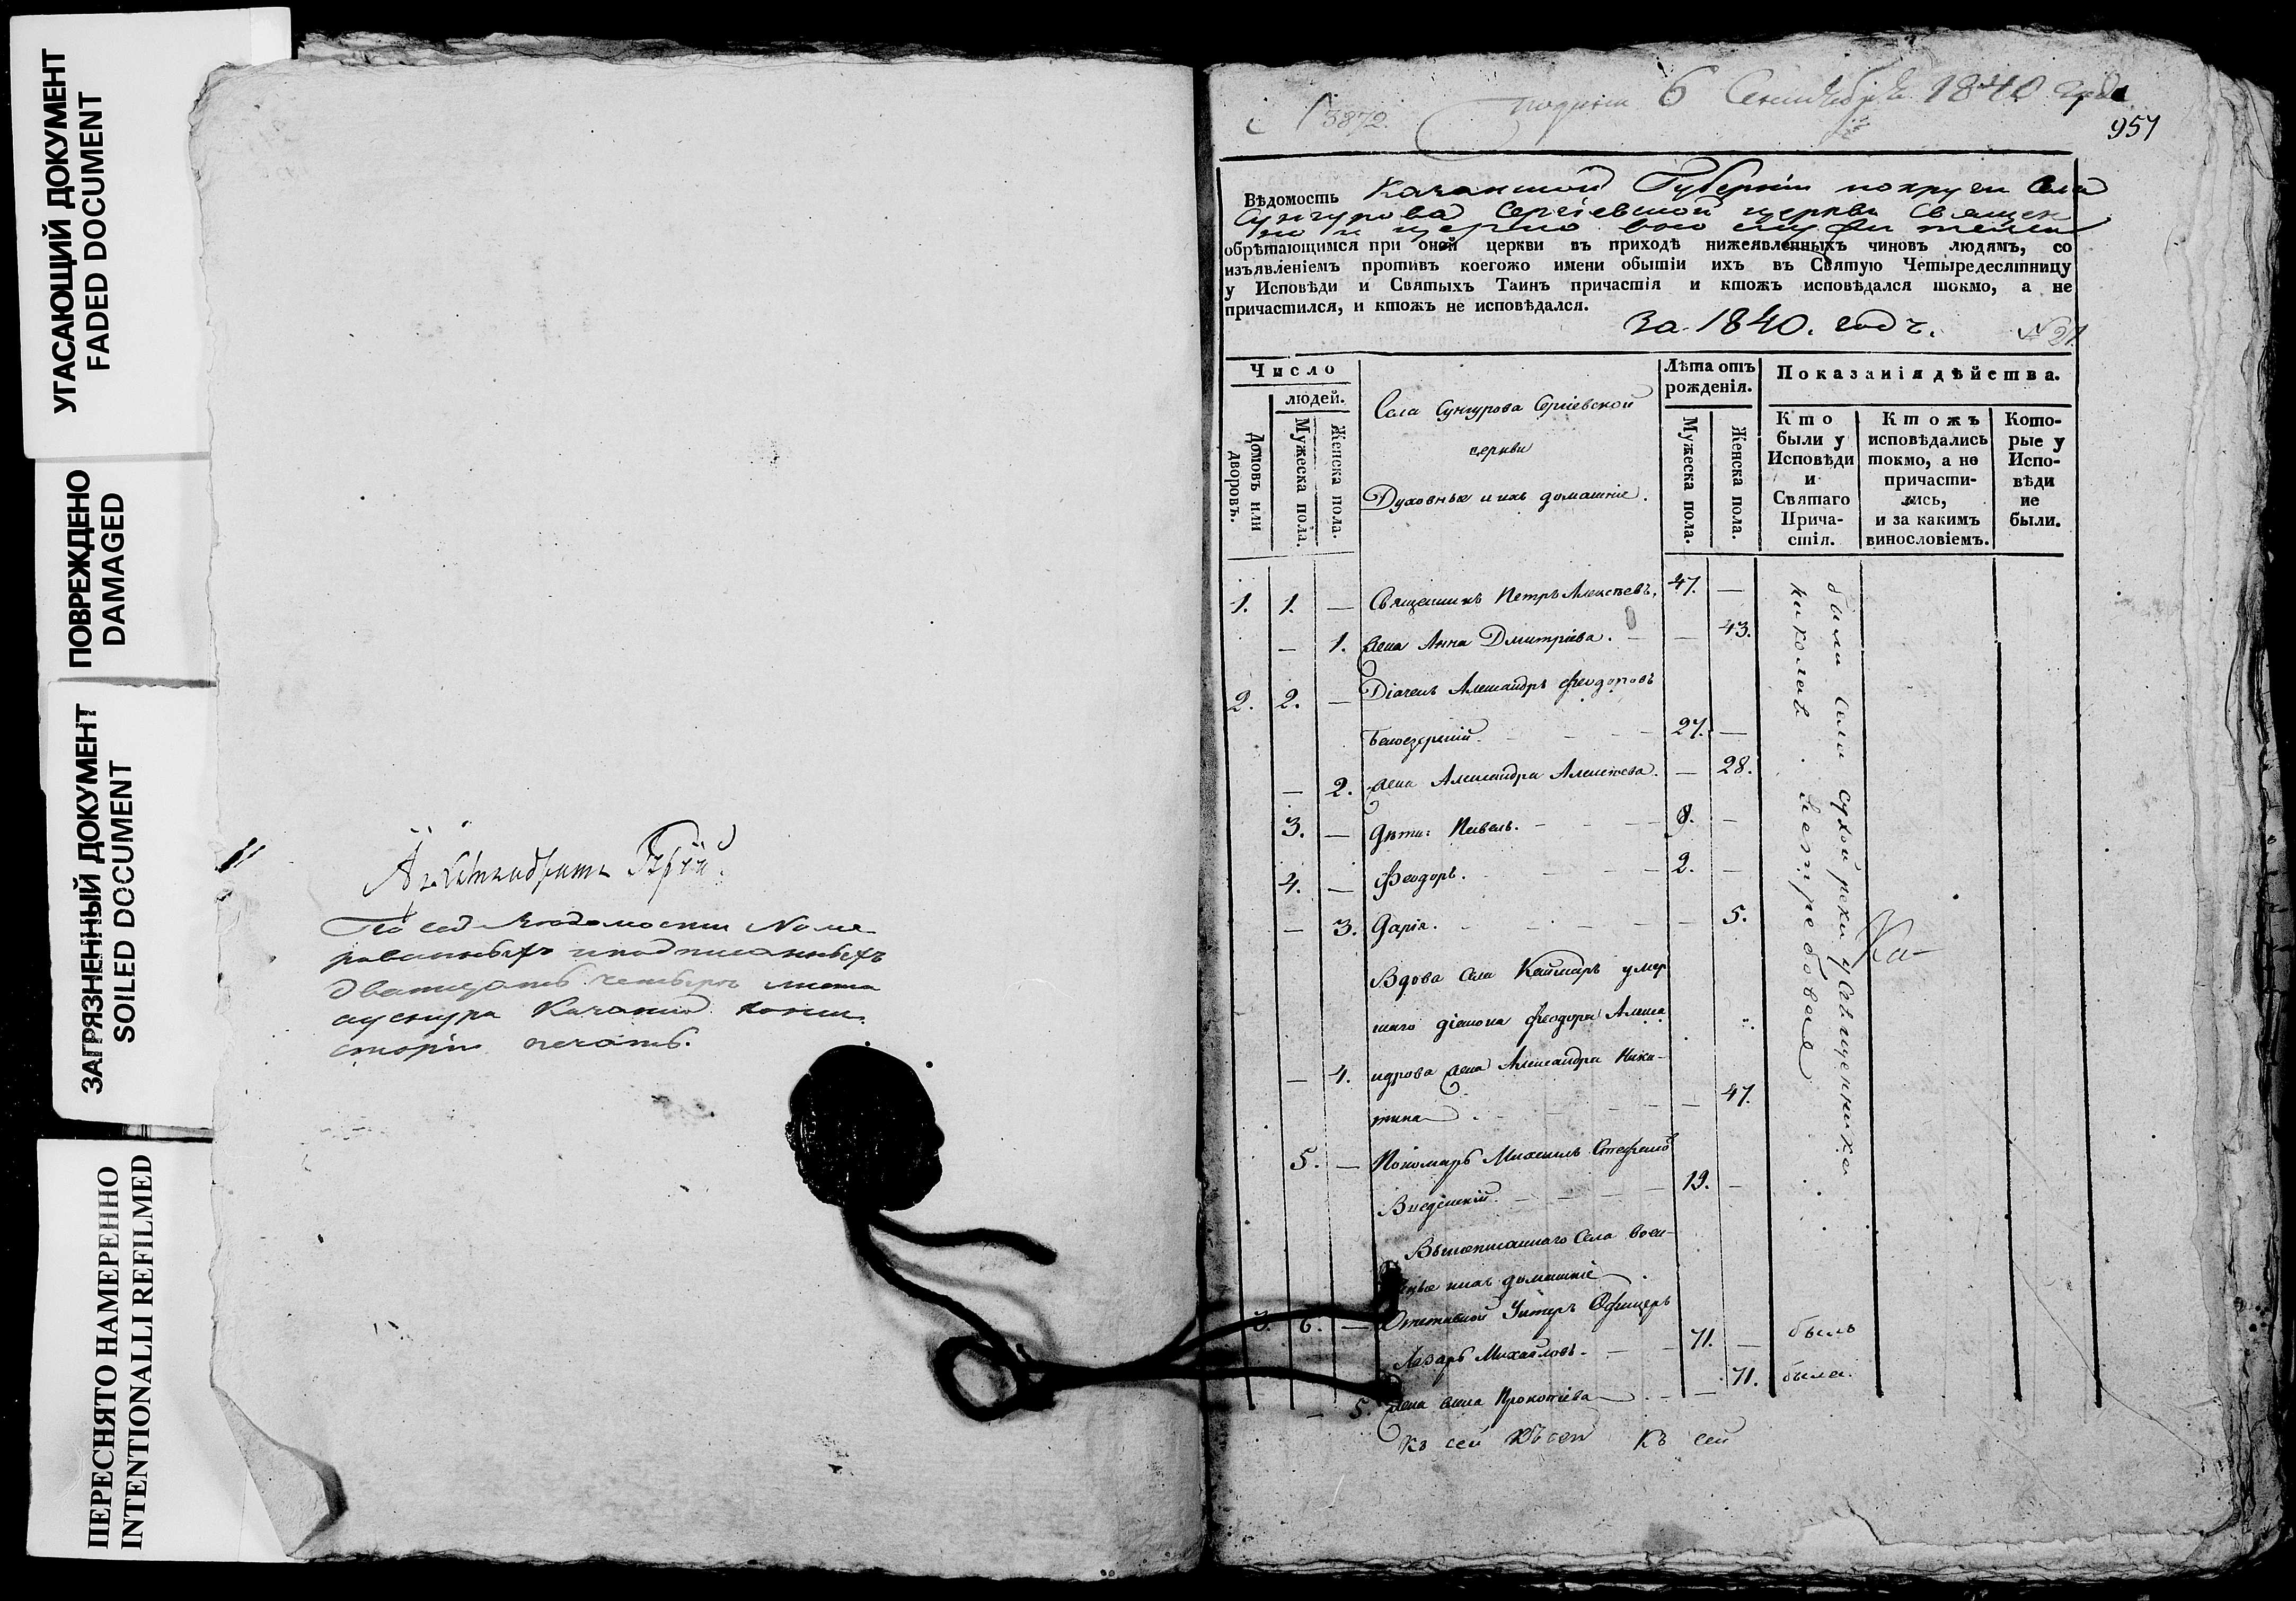 УГАСАЮЩИЙ ДОКУМЕНТ
FADED DOCUMENT
ПОВРЕЖДЕНО
DAMAGED
ЗАГРЯЗНЕННЫЙ ДОКУМЕНТ
SOILED DOCUMENT
ПЕРЕСНЯТО НАМЕРЕННО
INTENTIONALLI REFILMED
По сей Ведомости Номе
рованныхъ и подписанныхъ
двадцать четыре листа
Казанской Конси
сторіи печать.
3872.
6 Сентября 1840 года
957
Вѣдомость Казанской Губерніи по округи Села
Сунгурова Сергіевской церкви Священ
но и церковно служителей
обрѣтающимся при оной церкви въ приходѣ нижеявленныхъ чиновъ людямъ, со
изъявленіемъ противъ коегожо имени обытіи ихъ въ Святую Четыредесятницу
у Исповѣди и Святыхъ Таинъ причастія и ктожъ исповѣдался токмо, а не
причастился, и ктожъ не исповѣдался.
За 1840. годъ.
№ 21.
Число
людей.
Домовъ или дворовъ.
Мужеска пола.
Женска пола.
Села Сунгурова Сергіевской
церкви
Духовные и ихъ домашніе.
Лѣта отъ рожденія.
Мужеска пола.
Женска пола.
Показанія дѣйства.
Кто были у Исповѣди и Святаго Прича- стія.
Ктожъ исповѣдались токмо, а не причасти- лись, и за какимъ винословіемъ.
Кото- рые у Испо- вѣди не были.
1. 1. — Священникъ Петръ Алексѣевъ. 47. —
— 1. Жена Анна Дмитріева. — — 43.
2. 2. — Діаконъ Александръ Феодоровъ
Белоезерскій. 27. —
— 2. Жена Александра Алексѣева. — 28.
3. — Дѣти: Павелъ. 8. —
4. — Феодоръ. 2. —
— 3. Дарія. — 5.
Вдова Села Каймаръ умер
шаго діакона Феодора Алекса
— 4. ндрова Жена Александра Ники-
тина — 47.
5. — Пономарь Михаилъ Стефановъ
Введенскій. 19. —
были Села Сухой реки у Священника
Николая Ветребова
Ка-
Вышеписаннаго Села воен-
ные и ихъ домашніе
3. 6. — Отставной Унтеръ Офицеръ
Лазарь Михайловъ. 71. — былъ
— 5. Жена Прокопіева — 71. была.
Къ сей Къ сей Къ сей